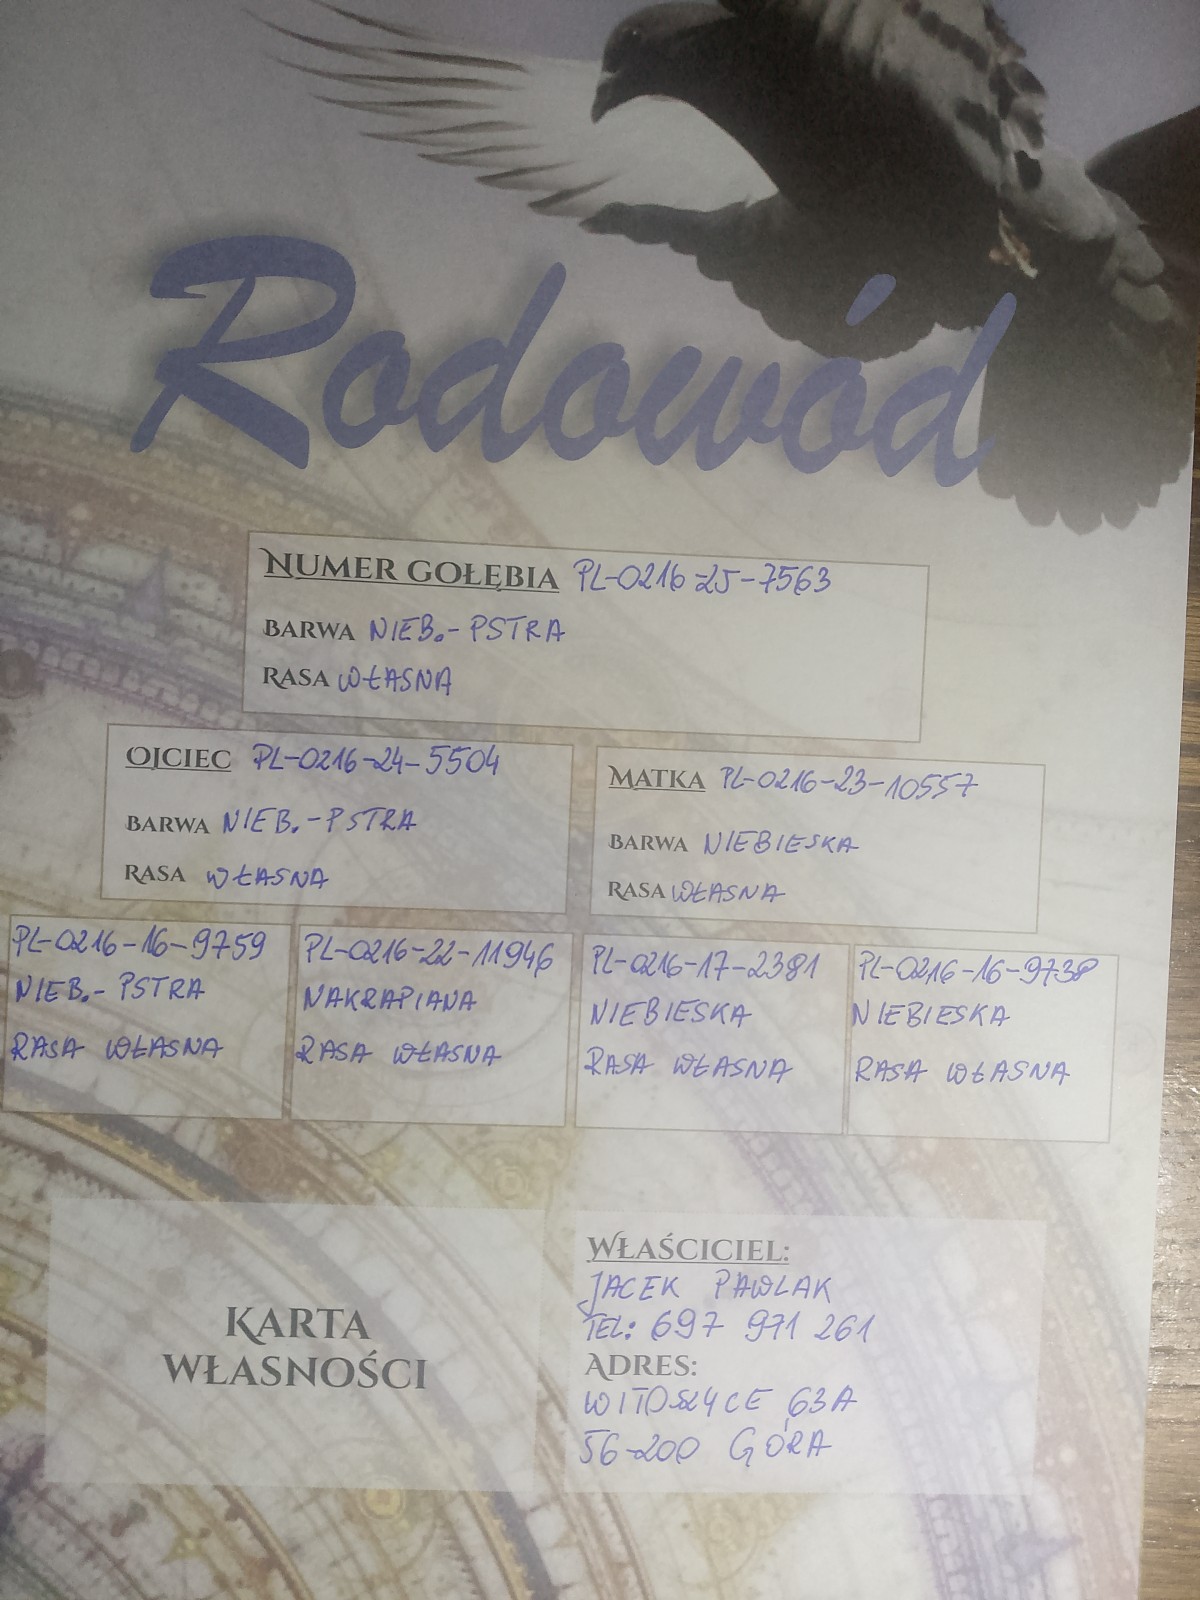 Rodowód
NUMER GOŁĘBIA PL-0216-25-7563
BARWA NIEB.-PSTRA
RASA WŁASNA
OJCIEC PL-0216-24-5504
BARWA NIEB.-PSTRA
RASA WŁASNA
MATKA PL-0216-23-10557
BARWA NIEBIESKA
RASA WŁASNA
PL-0216-16-9759
NIEB.-PSTRA
RASA WŁASNA
PL-0216-22-11946
NAKRAPIANA
RASA WŁASNA
PL-0216-17-2381
NIEBIESKA
RASA WŁASNA
PL-0216-16-9738
NIEBIESKA
RASA WŁASNA
KARTA
WŁASNOŚCI
WŁAŚCICIEL:
JACEK PAWLAK
TEL: 697 971 261
ADRES:
WITOSZYCE 63A
56-200 GÓRA